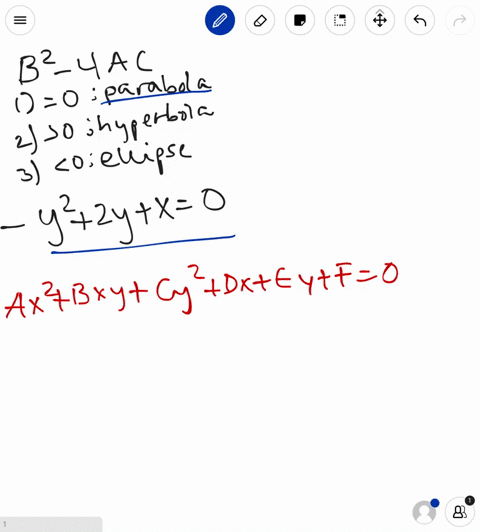 B²-4AC
1) =0 : parabola
2) >0 : hyperbola
3) <0 : ellipse
- y²+2y+x=0
Ax²+Bxy+Cy²+Dx+Ey+F=0
1
1